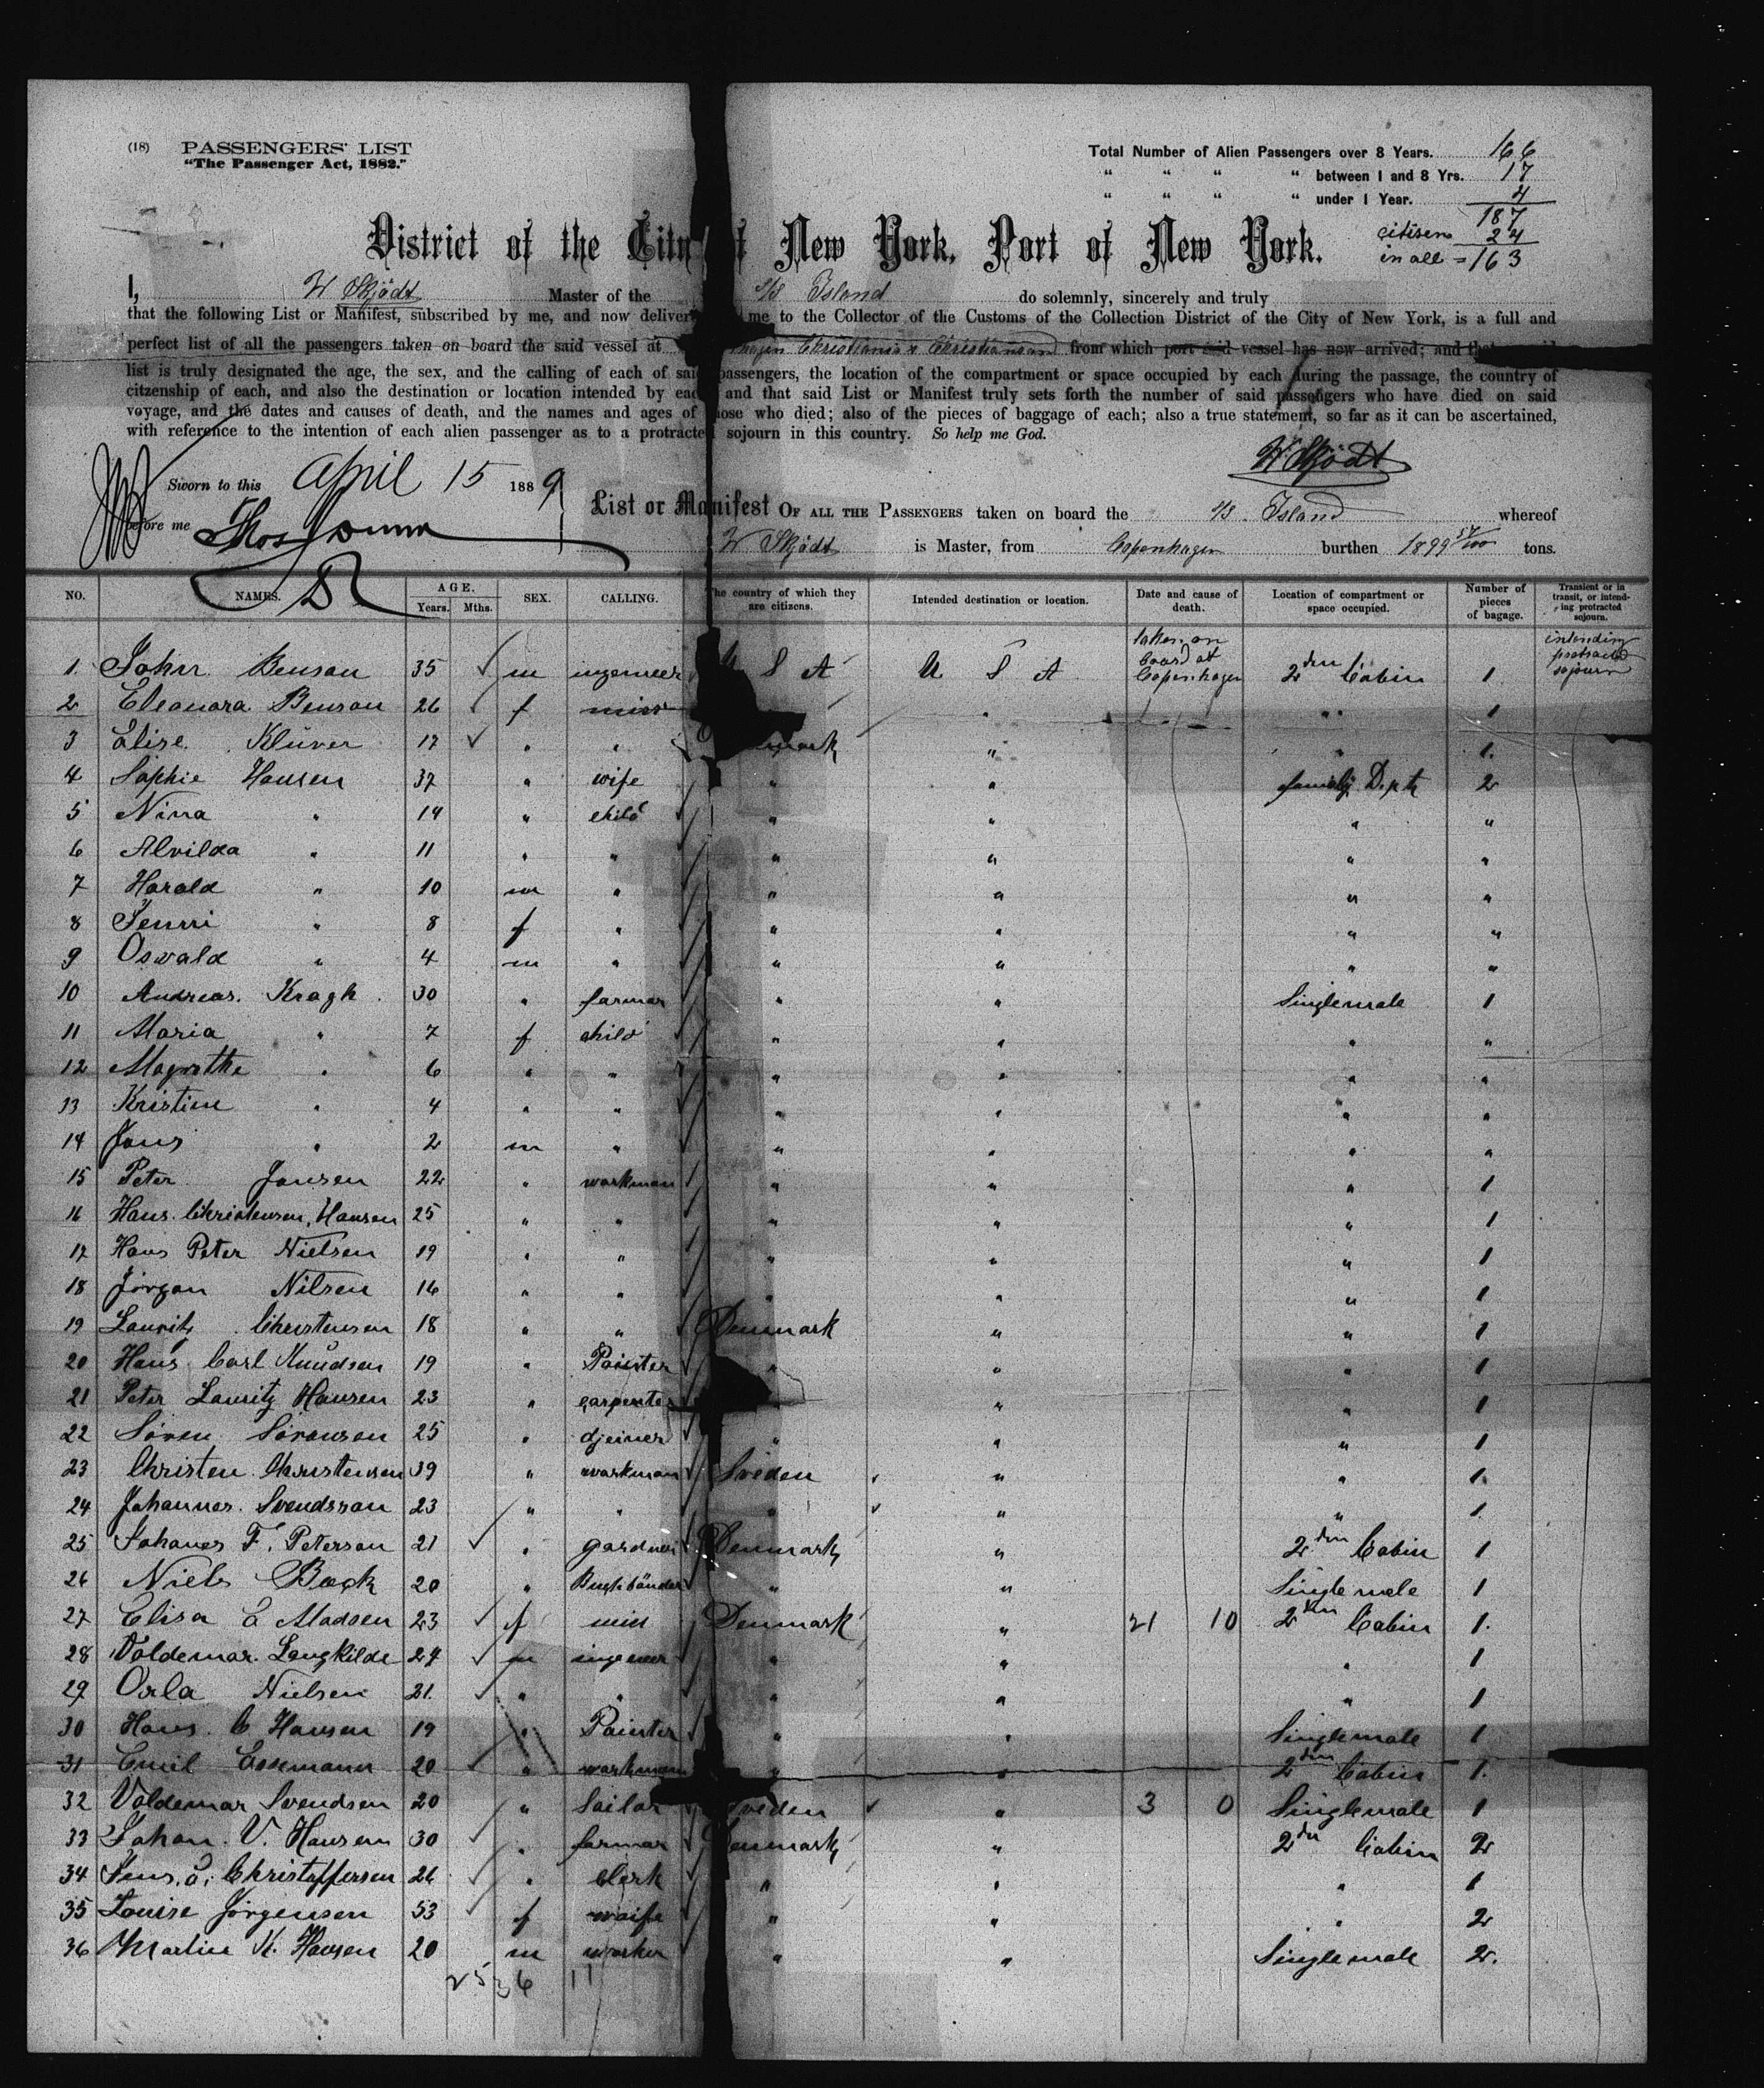 (18) PASSENGERS' LIST
"The Passenger Act, 1882."
Total Number of Alien Passengers over 8 Years. 166
" " " " between 1 and 8 Yrs. 17
" " " " under 1 Year. 4
187
citizens 24
in all = 163
District of the City of New York, Port of New York.
I, W Skjödt Master of the s/s Island do solemnly, sincerely and truly
that the following List or Manifest, subscribed by me, and now deliver me to the Collector of the Customs of the Collection District of the City of New York, is a full and
perfect list of all the passengers taken on board the said vessel at hagen Christiania & Christiansand from which port said vessel has now arrived; and that
list is truly designated the age, the sex, and the calling of each of said passengers, the location of the compartment or space occupied by each during the passage, the country of
citzenship of each, and also the destination or location intended by each and that said List or Manifest truly sets forth the number of said passengers who have died on said
voyage, and the dates and causes of death, and the names and ages of those who died; also of the pieces of baggage of each; also a true statement, so far as it can be ascertained,
with reference to the intention of each alien passenger as to a protracted sojourn in this country. So help me God.
W Skjödt
Sworn to this April 15 1889
before me Thos
List or Manifest OF ALL THE PASSENGERS taken on board the s/s. Island whereof
W Skjödt is Master, from Copenhagen burthen 1899 57/100 tons.
NO. NAMES. AGE. Years. Mths. SEX. CALLING. The country of which they are citizens. Intended destination or location. Date and cause of death. Location of compartment or space occupied. Number of pieces of bagage. Transient or in transit, or intending protracted sojourn.
1. John Benson 35 m ingenieer U S A U S A taken on board at Copenhagen 2den Cabin 1 intending protracted sojourn
2 Eleanora Benson 26 f miss " " 1
3 Elise Klüver 17 " " mark " " 1.
4 Sophie Hansen 37 " wife " " family Dept 2
5 Nina " 14 " child " " " "
6 Alvilda " 11 " " " " " "
7 Harald " 10 m " " " " "
8 Jenni " 8 f " " " " "
9 Oswald " 4 m " " " " "
10 Andreas Kragh 30 " farmer " " Singlemale 1
11 Maria " 7 f child " " " "
12 Magrethe " 6 " " " " " "
13 Kristine " 4 " " " " " "
14 Jens " 2 m " " " " "
15 Peter Jensen 22 " workman " " " 1
16 Hans Christensen Hansen 25 " " " " " 1
17 Hans Peter Nielsen 19 " " " " " 1
18 Jörgen Nilsen 16 " " " " " 1
19 Lauritz Christensen 18 " " Denmark " " 1
20 Hans Carl Knudsen 19 " Painter " " " 1
21 Peter Lauritz Hansen 23 " carpenter " " 1
22 Sören Sörensen 25 " djeiner " " " 1
23 Christen Christensen 39 " workman Sveden " " 1.
24 Johannes Svendsson 23 " " " " " 1.
25 Johanes F. Peterson 21 " gardner Denmark " 2den Cabin 1
26 Niels Back 20 " " " Single male 1
27 Elisa E Madsen 23 f miss Denmark " 21 10 2den Cabin 1.
28 Valdemar Langkilde 24 m ingeneer " " " 1
29 Orla Nielsen 21. " " " " " 1
30 Hans C Hansen 19 " Painter " " Singlemale 1
31 Emil Essemann 20 " workman " " 2den Cabin 1.
32 Valdemar Svendsen 20 " Sailor Sveden " 3 0 Singlemale 1
33 Johan V. Hansen 30 " farmer enmark " 2den Cabin 2
34 Jens Christoffersen 26 " Clerk " " " 1
35 Louise Jörgensen 53 f waife " " " 2
36 Martin K. Hansen 20 m worker " " Single male 2.
25 36 11